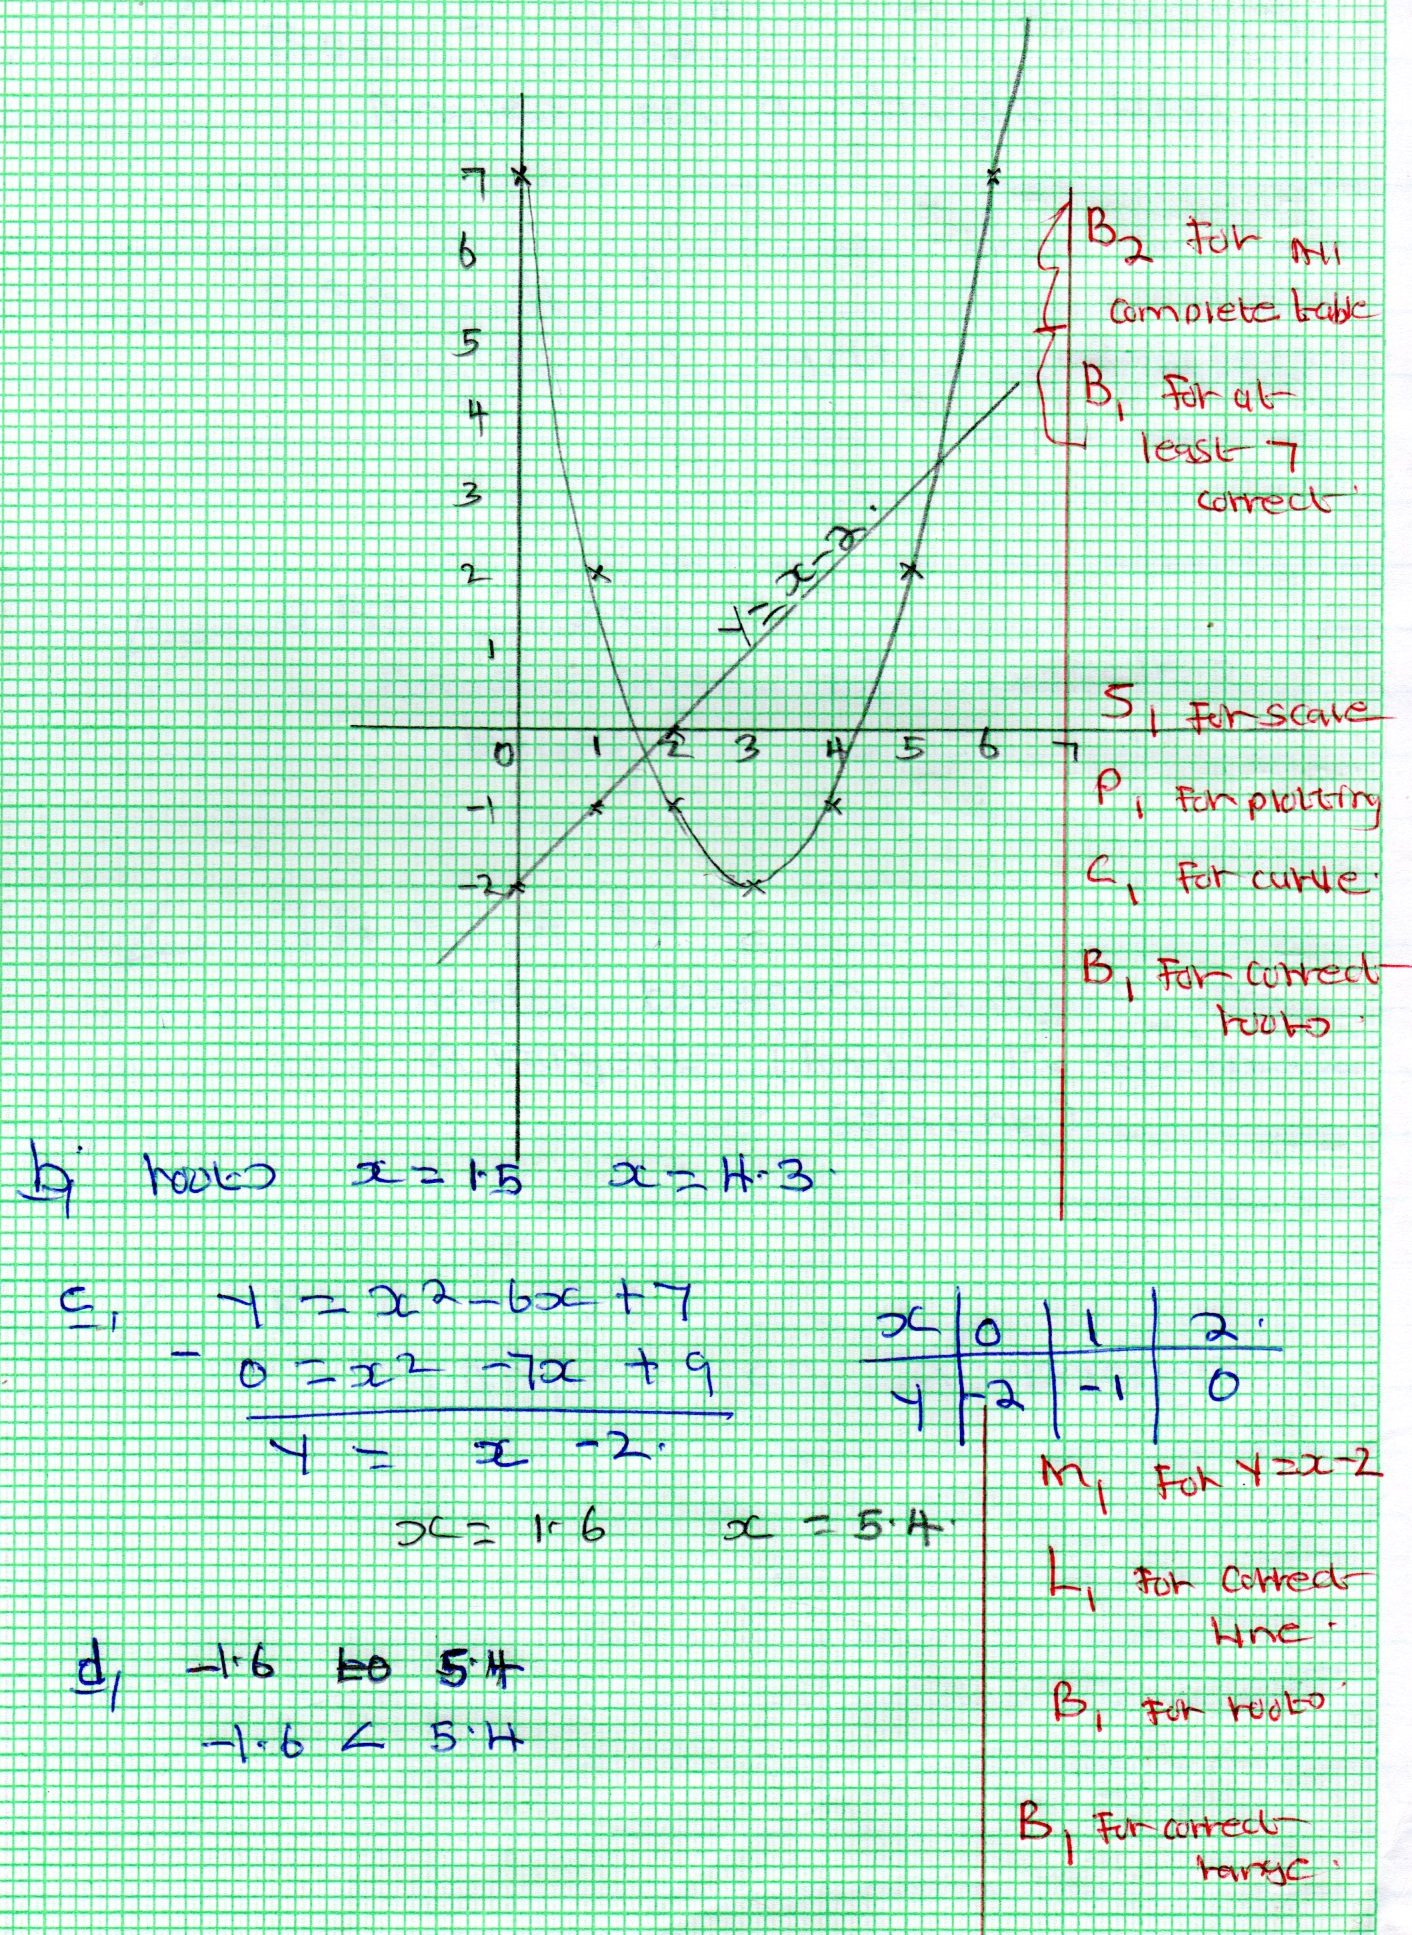 7
6
5
4
3
2
1
0 1 2 3 4 5 6 7
-1
-2
y = x-2.
B2 For All
complete table
B1 for at
least 7
correct.
S1 For scale
P1 For plotting
C1 For curve.
B1 For correct
roots.
b, roots x = 1.5 x = 4.3.
c, y = x2 - 6x + 7
- 0 = x2 - 7x + 9
y = x - 2.
x 0 1 2.
y -2 -1 0
x = 1.6 x = 5.4.
M1 For y = x-2
L1 For correct
line.
B1 For roots.
d, -1.6 to 5.4
-1.6 < 5.4
B1 For correct
range.